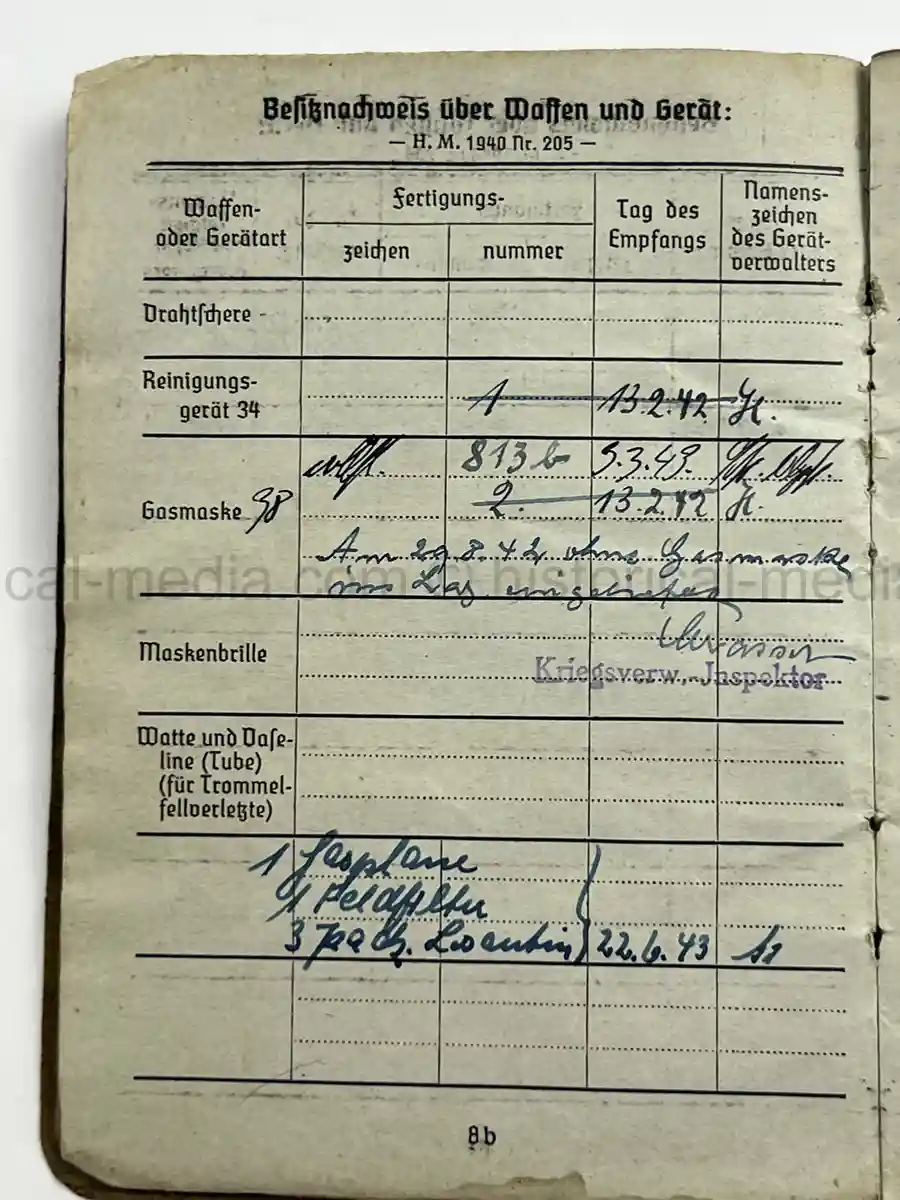 Besitznachweis über Waffen und Gerät:
— H. M. 1940 Nr. 205 —
Waffen-
oder Gerätart
Fertigungs-
zeichen
nummer
Tag des
Empfangs
Namens-
zeichen
des Gerät-
verwalters
Drahtschere -
Reinigungs-
gerät 34
1 13.2.42
Gasmaske 38
813 b 3.3.43.
2. 13.2.42
Am 29.8.42 ohne Gasmaske
ins Laz. eingeliefert
Maskenbrille
Kriegsverw.-Inspektor
Watte und Vase-
line (Tube)
(für Trommel-
fellverletzte)
1 Gasplane
1 Feldfilter
3 Pack. Losantin 22.6.43
8b
cai-media.com
historical-media